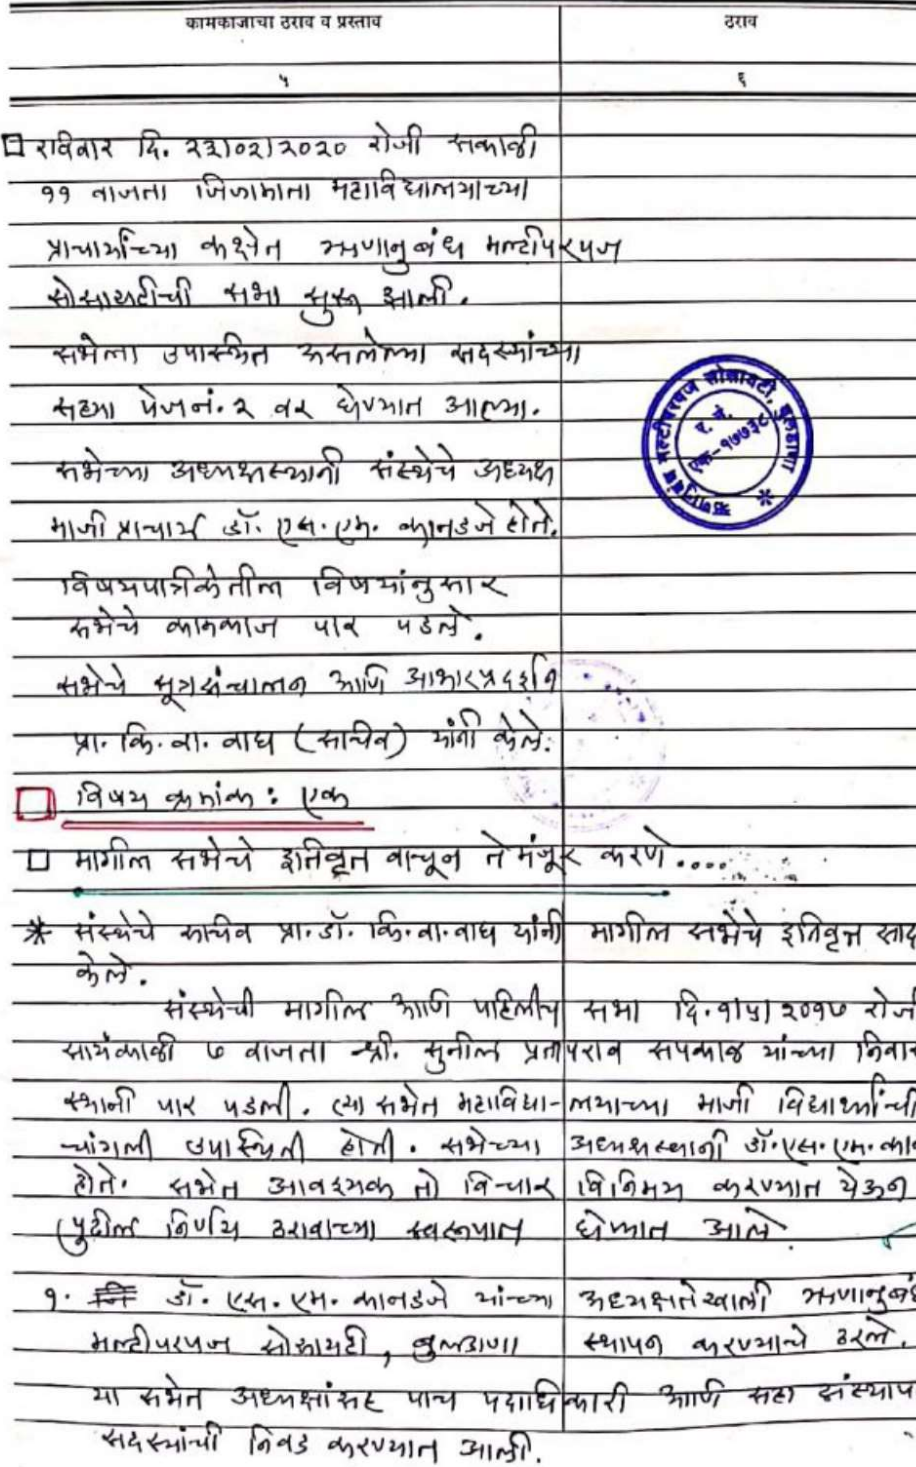 कामकाजाचा ठराव व प्रस्ताव
ठराव
५
६
रविवार दि. २३।०२।२०२० रोजी सकाळी
११ वाजता जिजामाता महाविद्यालयाच्या
प्राचार्यांच्या कक्षेत ऋणानुबंध मल्टीपरपज
सोसायटीची सभा सुरू झाली.
सभेला उपास्थित असलेल्या सदस्यांच्या
सह्या पेजनं. २ वर घेण्यात आल्या.
सभेच्या अध्यक्षस्थानी संस्थेचे अध्यक्ष
माजी प्राचार्य डॉ. एस. एम. कानडजे होते.
विषयपत्रिकेतील विषयांनुसार
सभेचे कामकाज पार पडले.
सभेचे सूत्रसंचालन आणि आभारप्रदर्शन
प्रा. कि. वा. वाघ (सचिव) यांनी केले.
विषय क्रमांक : एक
मागील सभेचे इतिवृत्त वाचून ते मंजूर करणे....
* संस्थेचे सचिव प्रा. डॉ. कि. वा. वाघ यांनी मागील सभेचे इतिवृत्त साद
केले.
संस्थेची मागील आणि पहिलीच सभा दि. १।५। २०१७ रोजी
सायंकाळी ७ वाजता श्री. सुनील प्रतापराव सपकाळ यांच्या निवास
स्थानी पार पडली. त्या सभेत महाविद्या-लयाच्या माजी विद्यार्थ्यांची
चांगली उपास्थिती होती. सभेच्या अध्यक्षस्थानी डॉ. एस. एम. कान
होते. सभेत आवश्यक तो विचार विनिमय करण्यात येऊन
पुढील निर्णय ठरावाच्या स्वरूपात घेण्यात आले.
१. डॉ. एस. एम. कानडजे यांच्या अध्यक्षतेखाली ऋणानुबंध
मल्टीपरपज सोसायटी, बुलडाणा स्थापन करण्याचे ठरले.
या सभेत अध्यक्षांसह पाच पदाधिकारी आणि सहा संस्थाप
सदस्यांची निवड करण्यात आली.
ऋणानुबंध मल्टीपरपज सोसायटी, बुलडाणा
र. नं.
एफ-१७७३८